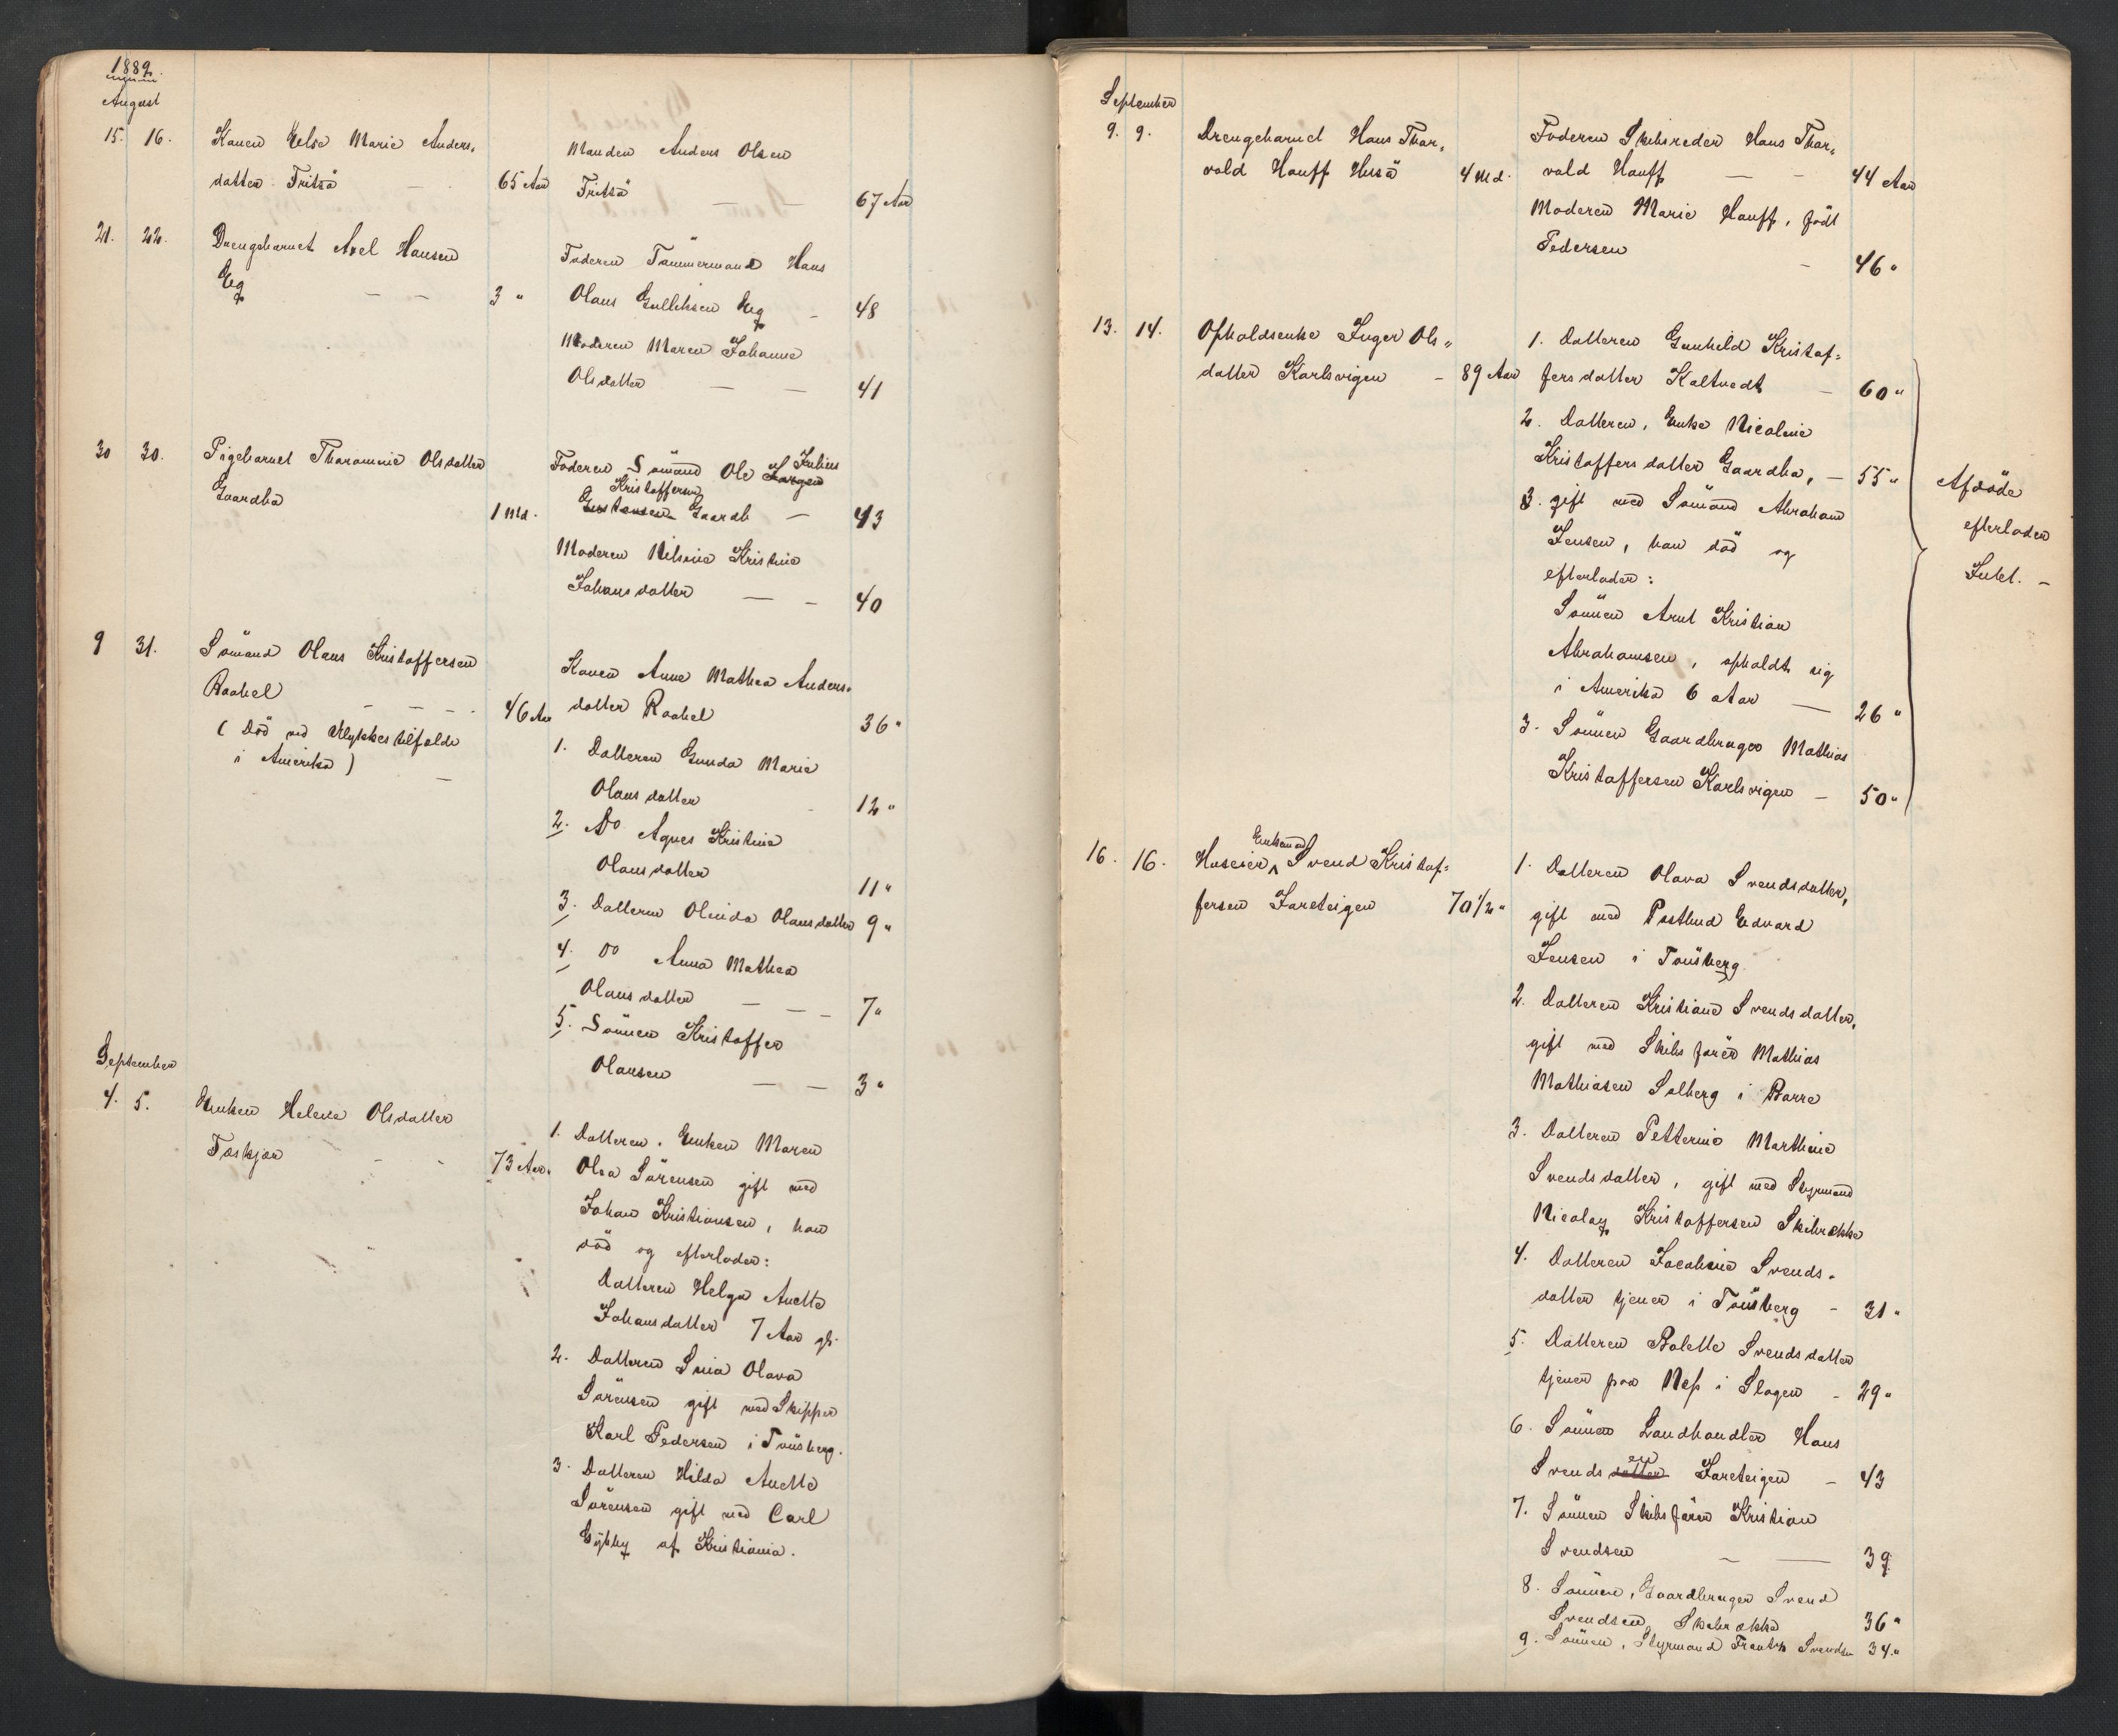 1889.
August
15. 16. Konen Else Marie Anders,
datter Fritsö — 65 Aar
Manden Anders Olsen
Fritsö — — 67 Aar
21. 22. Drengebarnet Axel Hansen
Eg — — 3 "
Faderen Tömmermand Hans
Olaus Gulliksen Eg — 48
Moderen Maren Johanne
Olsdatter — — 41
30 30. Pigebarnet Thoramine Olsdatter
Gaardbo 1 Md.
Faderen Sömand Ole Jörgen Julius
Kristoffersen
Gustavsen Gaardb — 43
Moderen Nilsine Kristine
Johansdatter — — 40
9 31. Sömand Olaus Kristoffersen
Raakel — — — 46 Aar
( Död ved Ulykkestilfælde
i Amerika ) —
Konen Anne Mathea Anders,
datter Raakel 36 "
1. Datteren Gunda Marie
Olausdatter 12 "
2. Do Agnes Kristine
Olausdatter 11 "
3. Datteren Olinda Olausdatter 9 "
4. Do Anna Mathea
Olausdatter — — — 7 "
5. Sönnen Kristoffer
Olausen — — 3 "
September
4. 5. Enken Helene Olsdatter
73 Aar.
1. Datteren. Enken Maren
Olea Sörensen gift med
Johan Kristiansen, han
död og efterlader:
Datteren Helga Anette
Johansdatter 7 Aar gl.
2. Datteren Olava
Sörensen gift med Skipper
Karl Pedersen i Tönsberg.
3. Datteren Hilda Anette
Sörensen gift med Carl
af Kristiania.
September
9. 9. Drengebarnet Hans Thor,
vald Hauff Husö 4 Md.
Faderen Skibsreder Hans Thor,
vald Hauff — — 44 Aar
Moderen Marie Hauff, född
Pedersen — 46 "
13. 14. Opholdsenke Inger Ols,
datter Karlsvigen — 89 Aar
1. Datteren Gunhild Kristof=
fersdatter Kaltvedt — 60 "
2. Datteren, Enke Nicoline
Kristoffersdatter Gaardbo, — 55 "
3. gift med Sömand Abraham
Jensen, han död og
efterlader:
Sönnen Arnt Kristian
Abrahamsen, opholdt sig
i Amerika 6 Aar — 26 "
3. Sönnen Gaardbruger Mathias
Kristoffersen Karlsvigen — 50 "
Afdöde
efterlader
Intet. —
16. 16. Huseier, Enkemand Svend Kristof=
fersen Jareteigen 70 1/2 "
1. Datteren Olava Svendsdatter,
gift med Postbud Edvard
Jensen i Tönsberg
2. Datteren Kristiane Svendsdatter,
gift med Skibsförer Mathias
Mathiasen Solberg i Borre
3. Datteren Petterine Marthine
Svendsdatter, gift med Styrmand
Nicolay Kristoffersen Skibrekke
4. Datteren Jacobine Svends,
datter tjener i Tönsberg — 31 "
5. Datteren Bolette Svendsdatter
tjener paa Nes i Slagen — 29 "
6. Sönnen Landhandler Hans
Svendsdatter en Jareteigen — 43
7. Sönnen Skibsförer Kristian
Svendsen — — 39
8. Sönnen, Gaardbruger Svend
Svendsen, Skibrekke 36 "
9. Sönnen, Styrmand Frantz Svendsen 34 "